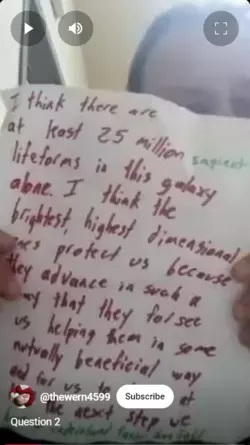 I think there are
at least 25 million sapient
lifeforms in this galaxy
alone. I think the
brightest, highest dimensional
protect us because
they advance in such a
way that they forsee
us helping them in some
mutually beneficial way
for us to at
the next step we
@thewern4599
Subscribe
Question 2